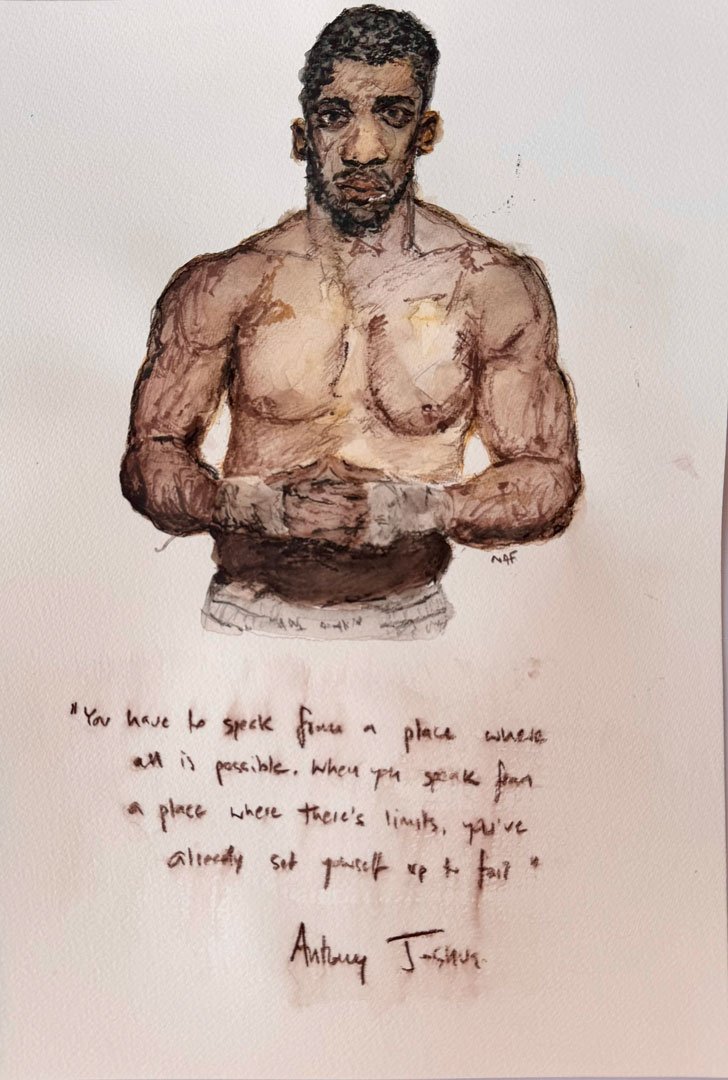 NAF
"You have to speak from a place where
all is possible. When you speak from
a place where there's limits, you've
already set yourself up to fail"
Antony Joshua